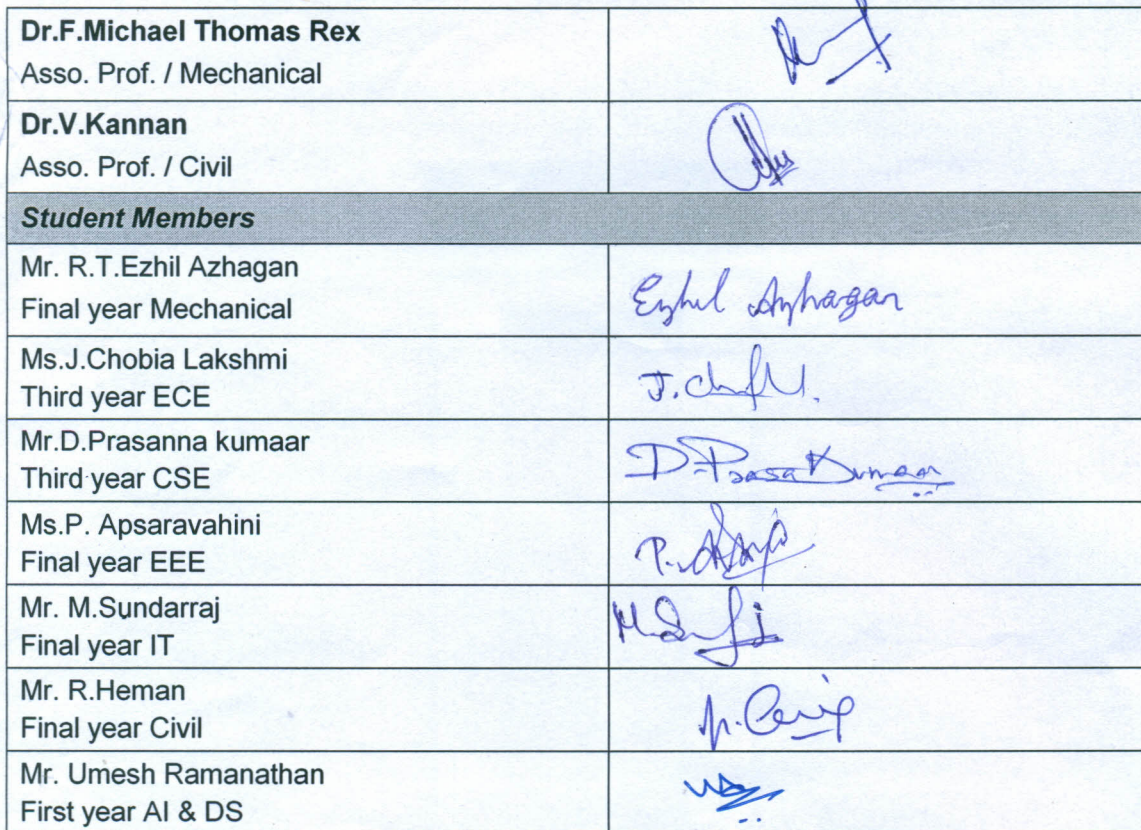 Dr.F.Michael Thomas Rex
Asso. Prof. / Mechanical
Dr.V.Kannan
Asso. Prof. / Civil
Student Members
Mr. R.T.Ezhil Azhagan
Final year Mechanical
Ezhil Azhagan
Ms.J.Chobia Lakshmi
Third year ECE
J.
Mr.D.Prasanna kumaar
Third year CSE
D.PrasaKumaar
Ms.P. Apsaravahini
Final year EEE
P.
Mr. M.Sundarraj
Final year IT
M.
Mr. R.Heman
Final year Civil
Mr. Umesh Ramanathan
First year AI & DS